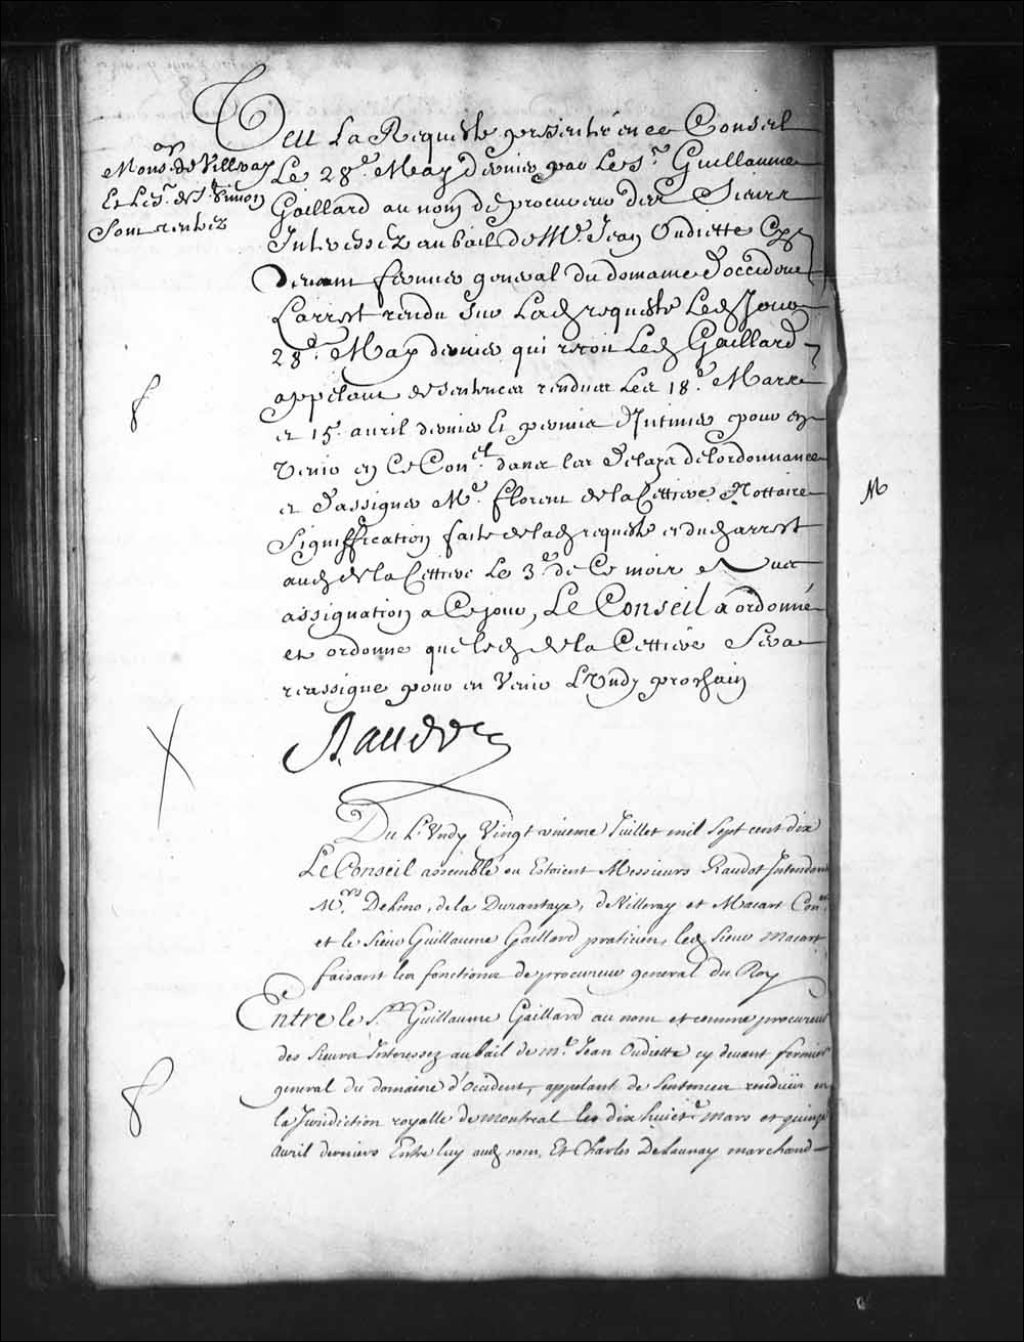 Veu La Requeste presentée en ce Conseil
Le 28e. May dernier par Le Sr. Guillaume
Gaillard au nom de procureur des Sieurs
Interessez au bail de Me. Jean Oudiette Cy
devant fermier general du domaine d'occident
L'arrest rendu sur Lad requeste Led Jour
28e. May dernier qui reçoit Led Gaillard
appelant de sentences rendues Les 18e. Mars
et 15e. avril dernier Et permis d'Intimer pour en
Venir en Ce Conel. dans les delaga de l'ordonnance
et d'assigner Me. florent de la Cettiere Nottaire
Signiffication faite de lad requeste et dud arrest
aud de la Cettiere Le 3e. de Ce mois et
assignation a Ce jour, Le Conseil a ordonné
et ordonne que led de la Cettiere Sera
reassigné pour en Venir Lundy prochain
Monsr. de Villeray
Et Le Sr. de St. Simon
Sont rentrez
M
Raudot
Du Lundy Vingt uniéme Juillet mil Sept cent dix
Le Conseil assemblé ou Estoient Messieurs Raudot Intendant
Mrs. Delino, de la Durantaye, de Villeray et Macart Coners.
et le Sieur Guillaume Gaillard praticien, led Sieur Macart
faisant les fonctions de procureur general du Roy
Entre le Sr. Guillaume Gaillard au nom et comme procureur
des Sieurs Interessez au bail de Me. Jean Oudiette cy devant fermier
general du domaine d'Occident, appelant de Sentences rendües en
la Jurisdiction royalle de Montreal les dix huict Mars et quinze
Avril derniers Entre luy aud nom, Et Charles Delaunay marchand